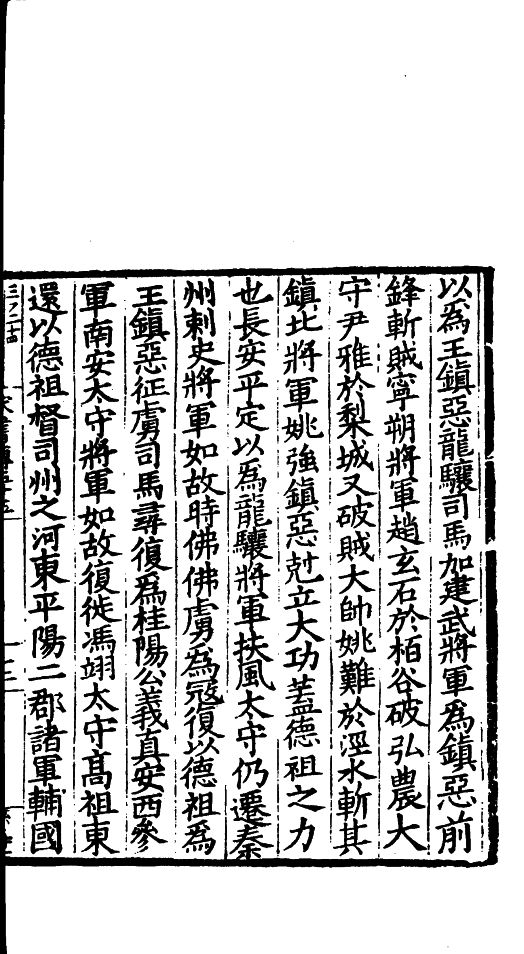 以為王鎮惡龍驤司馬加建武將軍為鎮惡前
鋒斬賊寧朔將軍趙玄石於栢谷破弘農大
守尹雅於梨城又破賊大帥姚難於涇水斬其
鎮北將軍姚強鎮惡尅立大功蓋德祖之力
也長安平定以為龍驤將軍扶風太守仍遷秦
州刺史將軍如故時佛佛虜為寇復以德祖為
王鎮惡征虜司馬尋復為桂陽公義真安西參
軍南安太守將軍如故復徙馮翊太守高祖東
還以德祖督司州之河東平陽二郡諸軍輔國